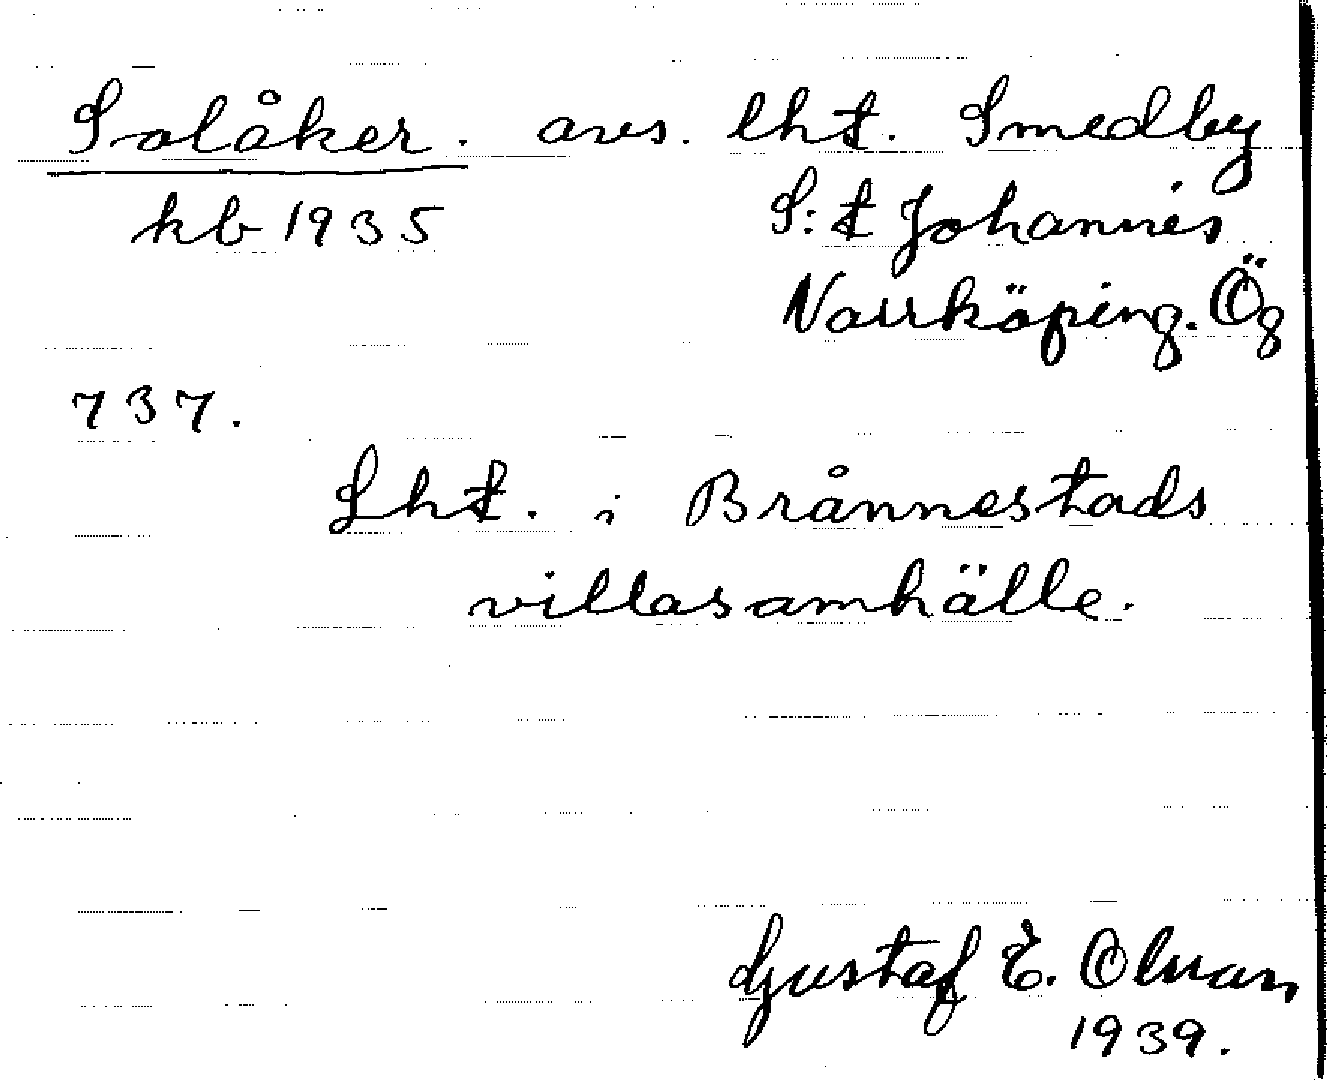 Solåker. avs. lht. Smedby
kb 1935 S:t Johannes
Norrköping. Ög
737.
Lht. i Brånnestads
villasamhälle.
Gustaf E. Olman
1939.